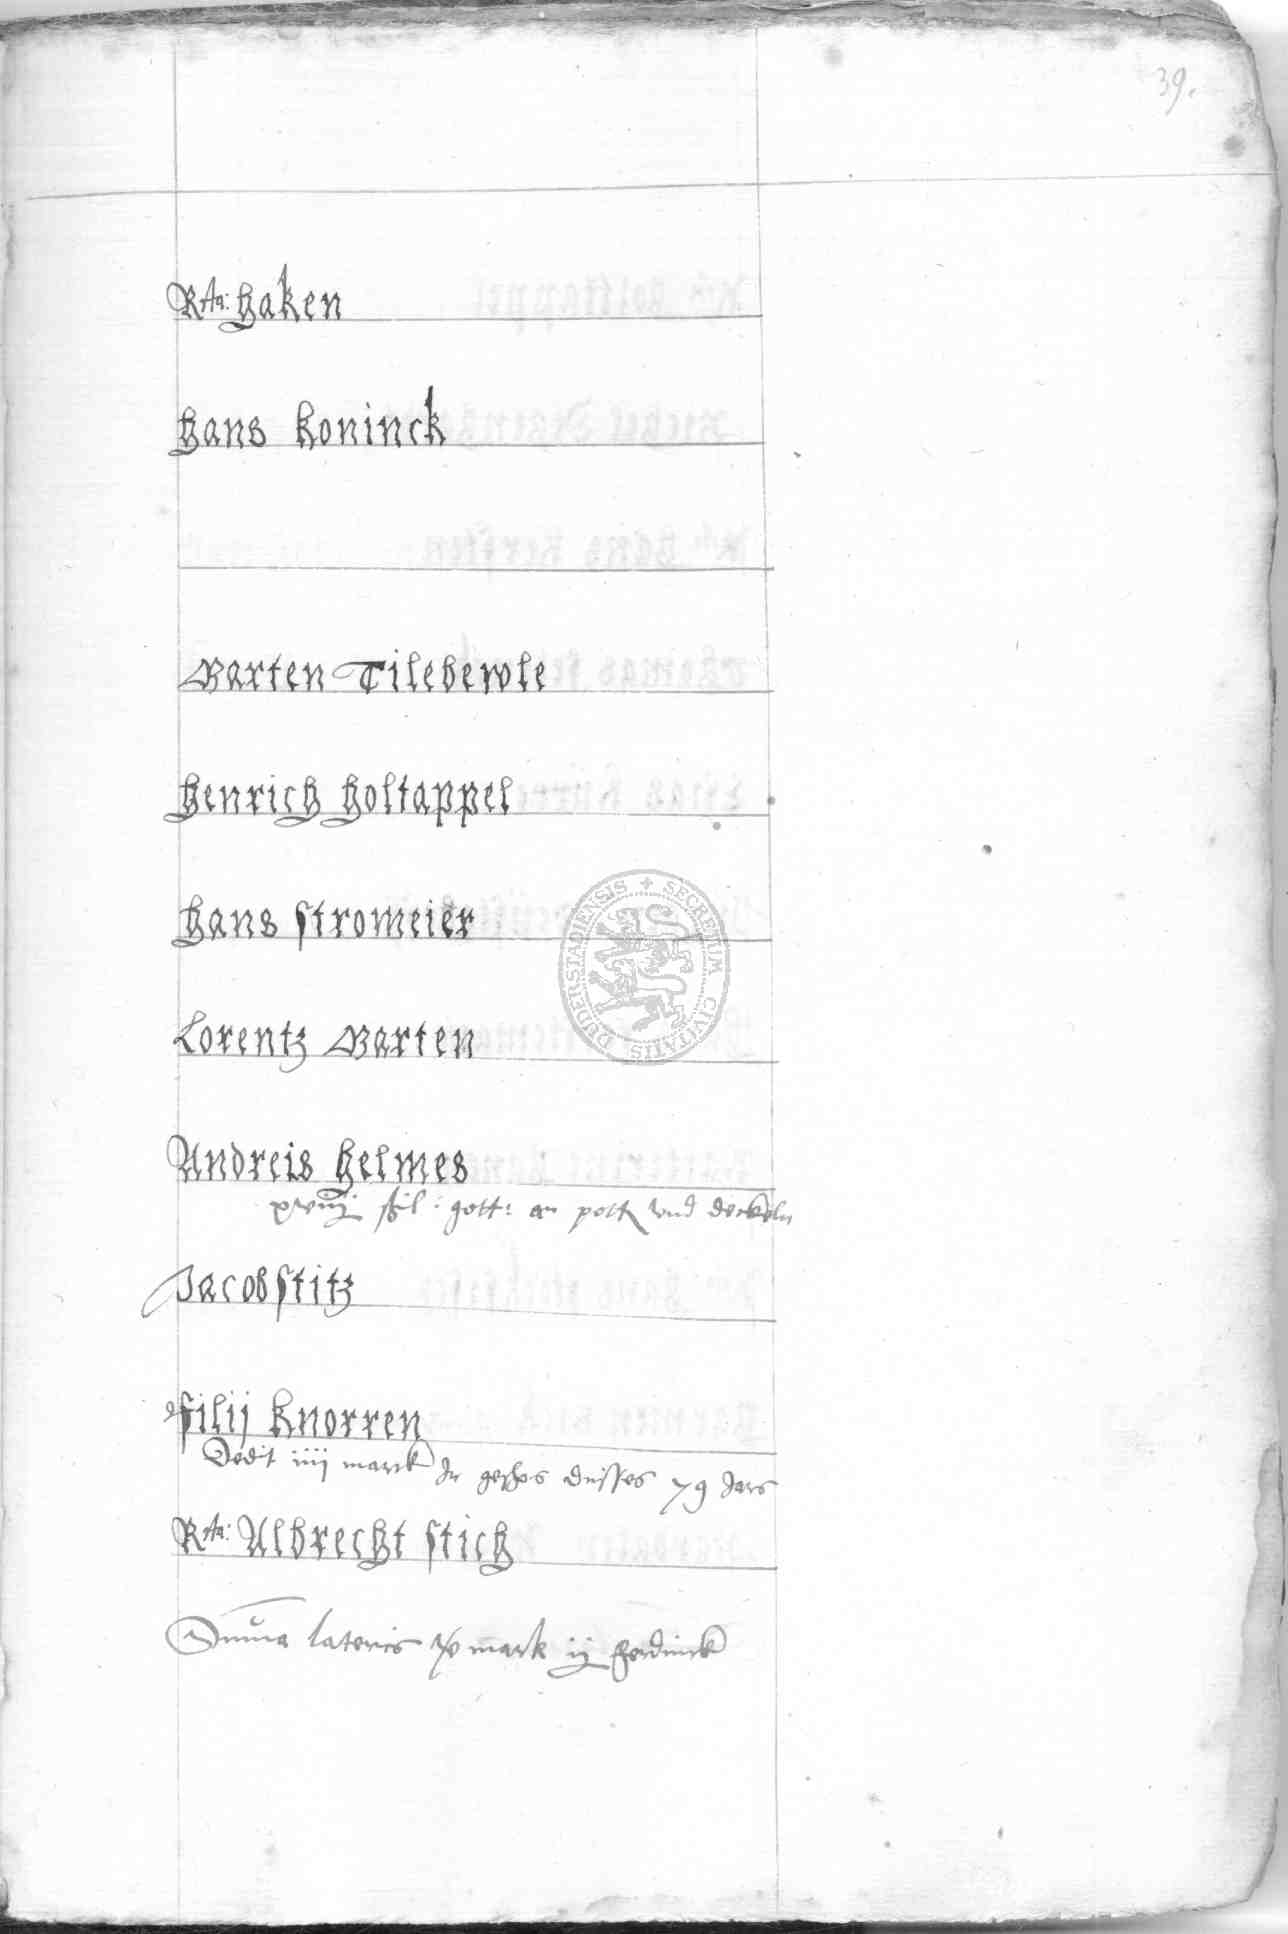 39.
Rta: Haken
Hans Koninck
Barten Tilebewle
Henrich Holtappel
Hans Stromeier
Lorentz Barten
Andreis Helmes
xviij ßil: gott: an pott und deckeln
Jacob Stitz
Filij Knorren
Dedit iiij marck In geschos disses 79 Jars
Rta: Albrecht Stich
Summa lateris mark ij ferdinck
SECRETUM CIVITATIS DUDERSTADIENSIS